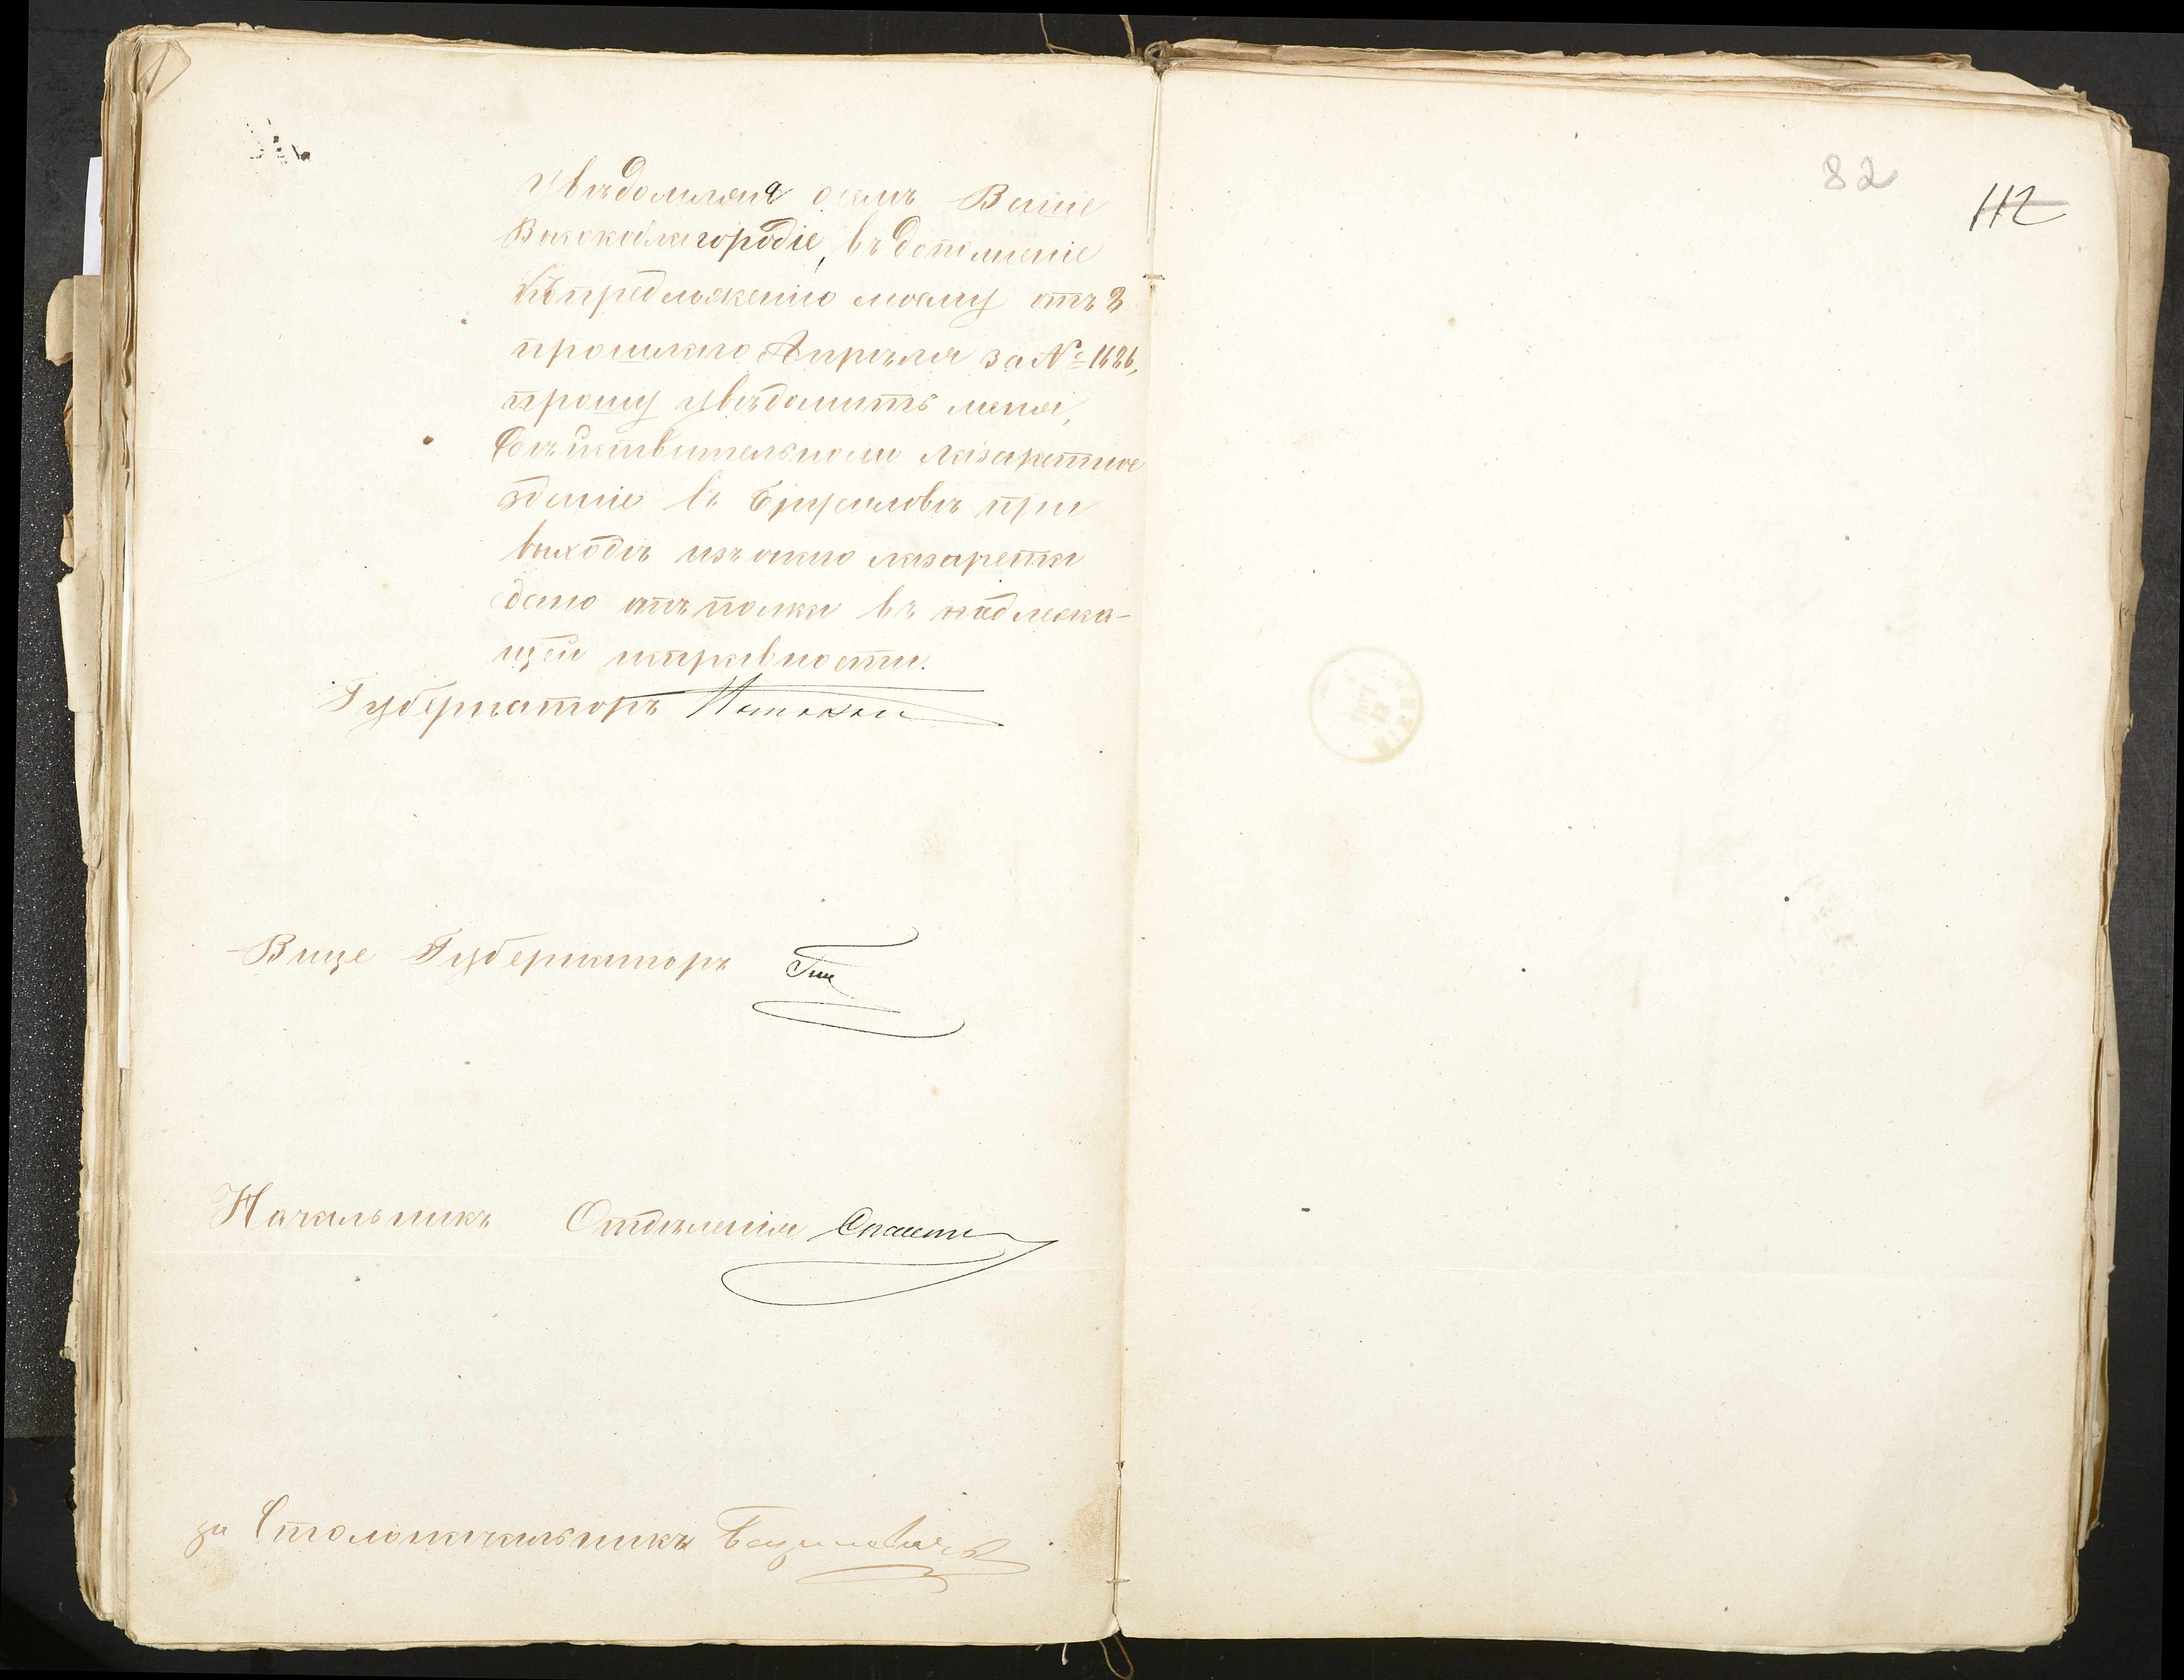 Увѣдомляя о семъ Ваше
Высокоблагородіе, въ дополненіе
къ предложенію моему отъ 2
прошлаго Апрѣля за № 1626,
прошу увѣдомить меня,
дѣйствительно ли лазаретное
зданіе въ Брусиловѣ при
выходѣ изъ онаго лазарета
сдано отъ полка въ надлежа-
щей исправности.
Губернаторъ
Вице Губернаторъ
Начальникъ Отдѣленія
за Столоначальника
82
112
КІЕВЪ